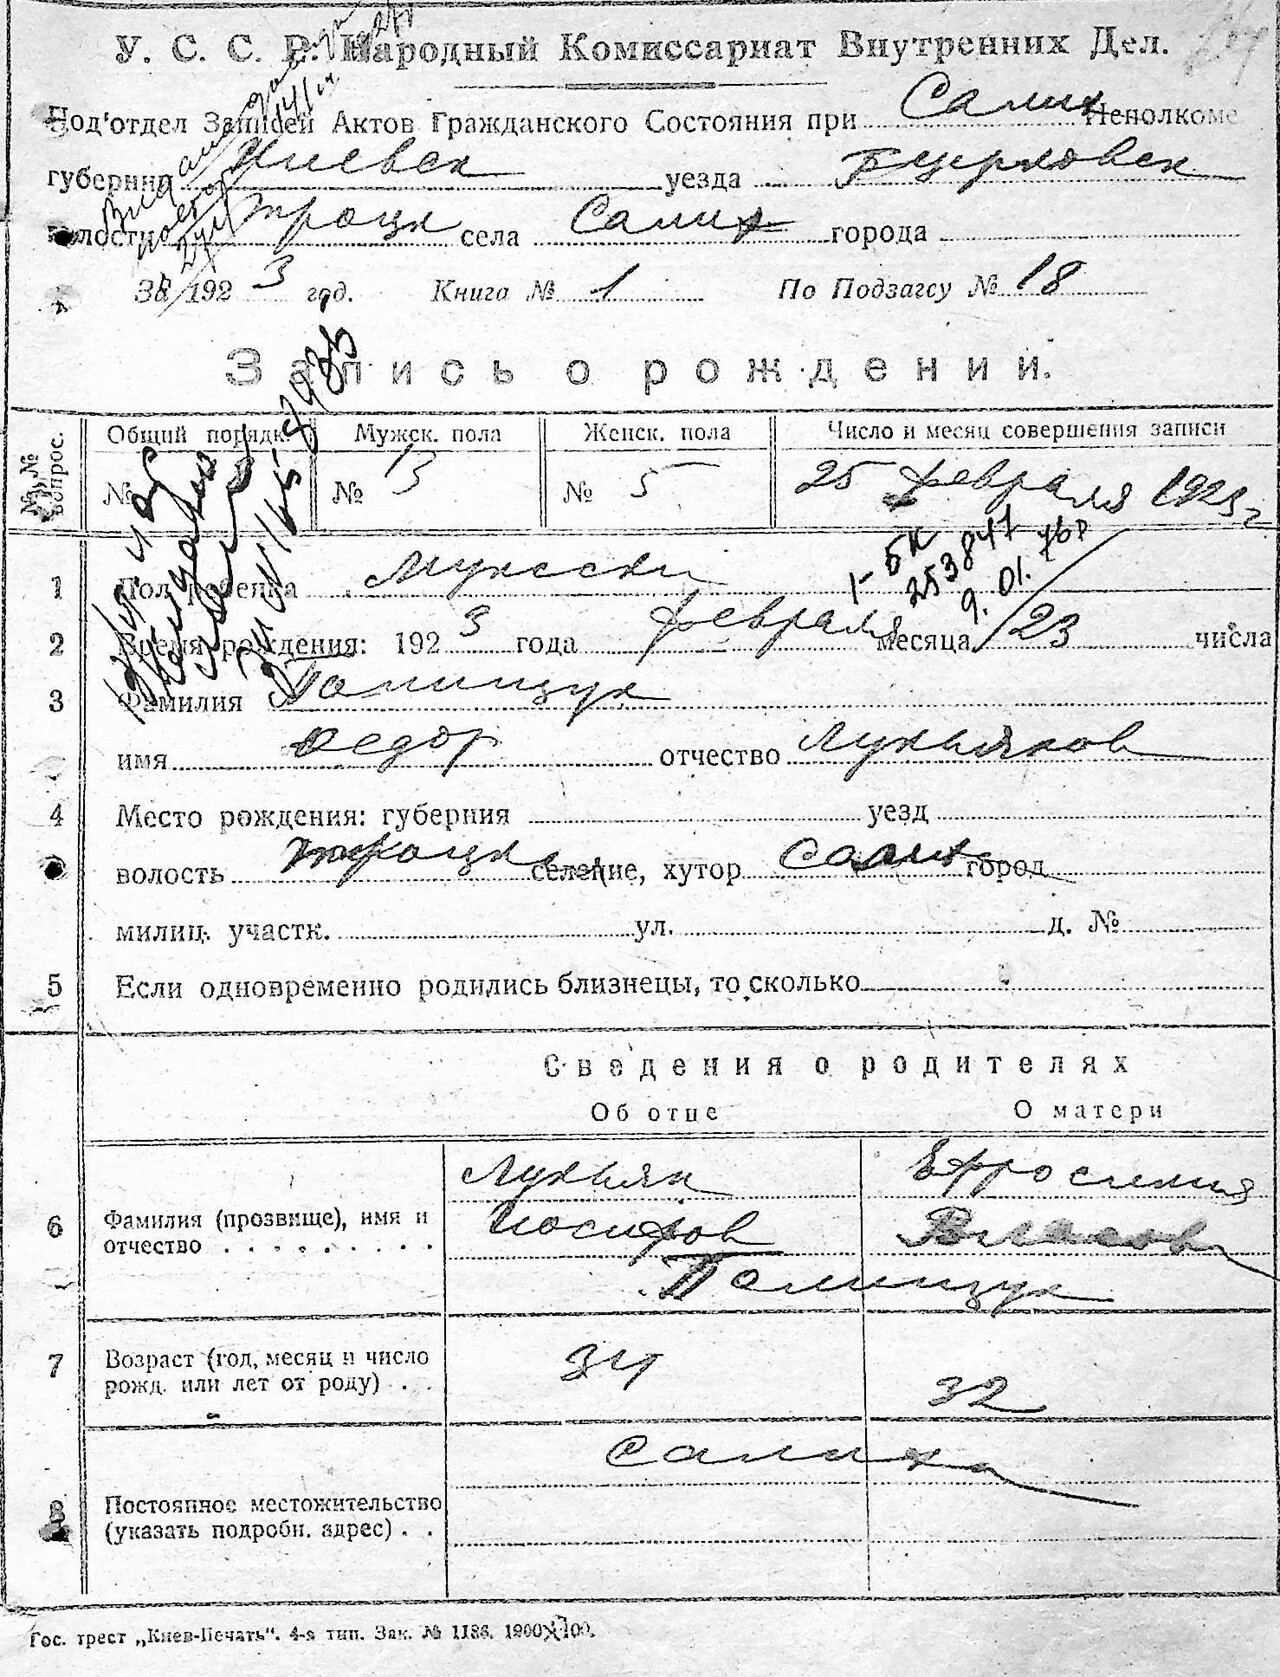 У. С. С. Р. Народный Комиссариат Внутренних Дел.
Под'отдел Записей Актов Гражданского Состояния при Салих Исполкоме
губернии Киевск уезда
волости Троцк села Салих города
За 1923 год. Книга № 1 По Подзагсу № 18
Запись о рождении.
№№ вопрос. Общий порядк. Мужск. пола Женск. пола Число и месяц совершения записи
№ № 13 № 5 25 февраля 1923 г
1-БК
253847
9.01.76р
1 Пол ребенка Мужески
2 Время рождения: 1923 года февраля месяца 23 числа
3 Фамилия Полищук
имя Федор отчество Лукьянов
4 Место рождения: губерния уезд
волость Троцка селение, хутор Салиха город
милиц. участк. ул. д. №
5 Если одновременно родились близнецы, то сколько
Сведения о родителях
Об отце О матери
Лукьян Ефросиния
6 Фамилия (прозвище), имя и отчество Иосифов Власов
Полищук
7 Возраст (год, месяц и число рожд. или лет от роду) 34 32
Салиха
8 Постоянное местожительство (указать подробн. адрес)
Гос. трест „Киев-Печать". 4-я тип. Зак. № 1186. 1900×100.